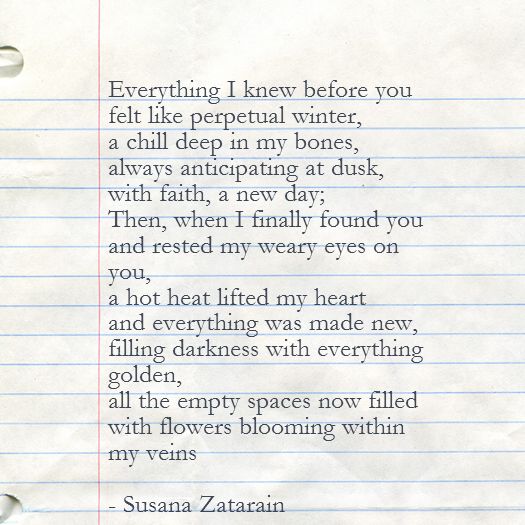 Everything I knew before you
felt like perpetual winter,
a chill deep in my bones,
always anticipating at dusk,
with faith, a new day;
Then, when I finally found you
and rested my weary eyes on
you,
a hot heat lifted my heart
and everything was made new,
filling darkness with everything
golden,
all the empty spaces now filled
with flowers blooming within
my veins
- Susana Zatarain